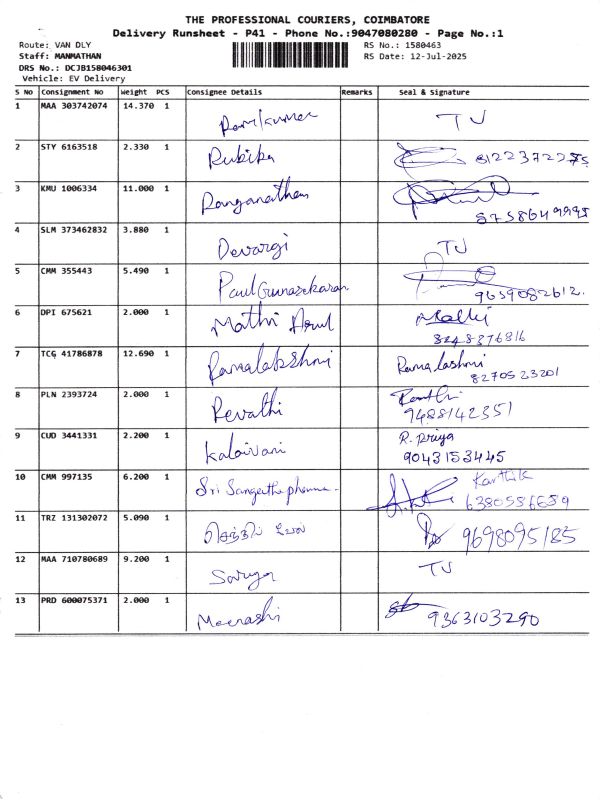 THE PROFESSIONAL COURIERS, COIMBATORE
Delivery Runsheet - P41 - Phone No.:9047080280 - Page No.:1
Route: VAN DLY RS No.: 1580463
Staff: MANMATHAN RS Date: 12-Jul-2025
DRS No.: DCJB158046301
Vehicle: EV Delivery
S No Consignment No Weight PCS Consignee Details Remarks Seal & Signature
1 MAA 303742074 14.370 1 Ramkumar TJ
2 STY 6163518 2.330 1 Rubika 8122372275
3 KMU 1006334 11.000 1 Ranganathan 8758649995
4 SLM 373462832 3.880 1 Devargi TJ
5 CMM 355443 5.490 1 Paul Gunasekaran 9659082612
6 DPI 675621 2.000 1 Mathi Arul 8248376816
7 TCG 41786878 12.690 1 Ramalakshmi Rama lashmi 8270523201
8 PLN 2393724 2.000 1 Revathi 9488142351
9 CUD 3441331 2.200 1 Kalaivani R. Priya 9043153445
10 CMM 997135 6.200 1 Sri Sangeetha pharma Karthik 6380586689
11 TRZ 131302072 5.090 1 செந்தில் வேலன் 9698095185
12 MAA 710780689 9.200 1 Sarya TJ
13 PRD 600075371 2.000 1 Meenashi 9363103290